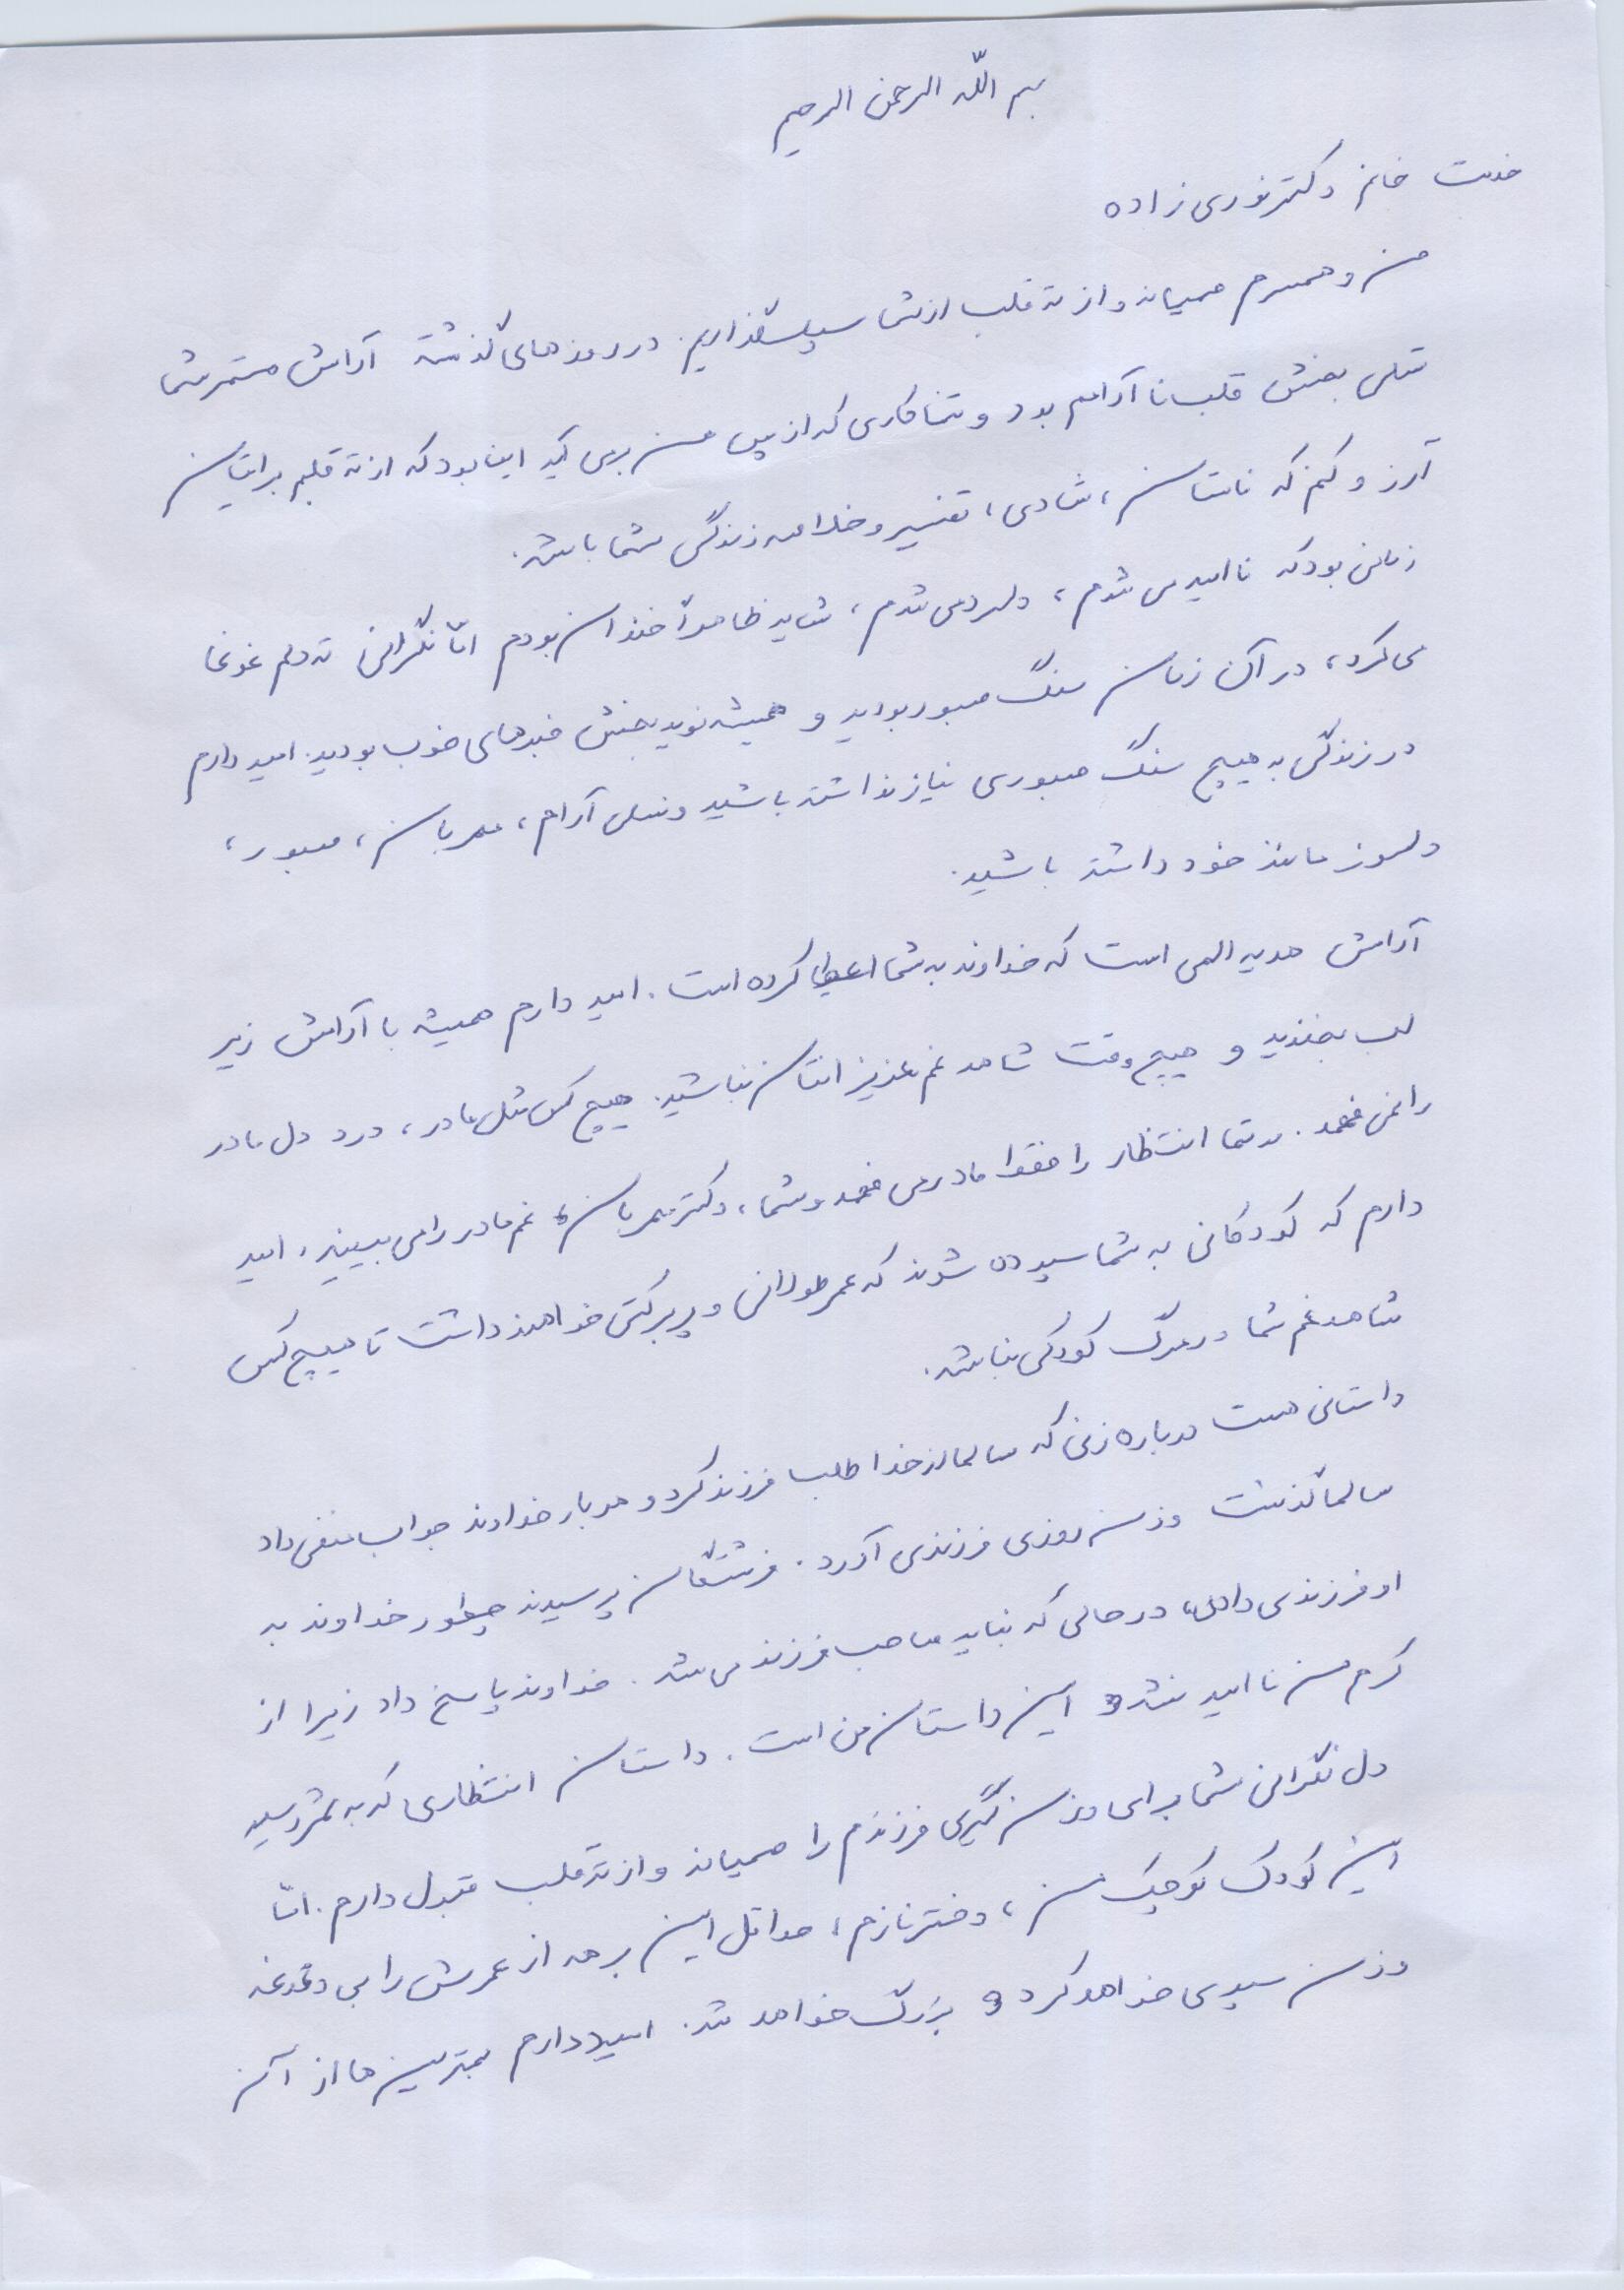 بسم اللّه الرحمن الرحیم
خدمت خانم دکتر نوری زاده
من و همسرم صمیمانه و از ته قلب از شما سپاسگذاریم. در روزهای گذشته آرامش مستمر شما
تسلی بخش قلب ناآرامم بود و تنها کاری که از پس من برمی آید این بود که از ته قلبم برایتان
آرزو کنم که نامتان، شادی، تفسیر و خلاصه زندگی شما باشد.
زمانی بود که ناامید می شدم، دلسرد می شدم، شاید ظاهراً خندان بودم امّا نگرانی ته دلم غوغا
می کرد، در آن زمان سنگ صبور بودید و همیشه نوید بخش خبرهای خوب بودید. امید دارم
در زندگی به هیچ سنگ صبوری نیاز نداشته باشید و نسلی آرام، مهربان، صبور،
دلسوز مانند خود داشته باشید.
آرامش هدیه الهی است که خداوند به شما اعطا کرده است. امید دارم همیشه با آرامش زیر
لب بخندید و هیچ وقت شاهد غم عزیزانتان نباشید. هیچ کس مثل مادر، درد دل مادر
را نمی فهمد. انتظار را فقط مادر می فهمد و شما، دکتر مهربان، غم مادر را می بینید، امید
دارم که کودکانی به شما سپرده شوند که عمر طولانی و پر برکتی خواهند داشت تا هیچ کس
شاهد غم شما در مرگ کودکی نباشد.
داستانی هست درباره زنی که سالها از خدا طلب فرزند کرد و هر بار خداوند جواب منفی داد
سالها گذشت و زن روزی فرزندی آورد. فرشتگان پرسیدند چطور خداوند به
او فرزندی داده، در حالی که نباید صاحب فرزند می شد. خداوند پاسخ داد زیرا از
کرم من ناامید نشد و این داستان من است. داستان انتظاری که به ثمر رسید
دل نگرانی شما برای وزن گیری فرزندم را صمیمانه و از ته قلب قبول دارم. امّا
این کودک کوچک من، دختر نازم، حداقل این برهه از عمرش را بی دغدغه
وزن سپری خواهد کرد و بزرگ خواهد شد. امید دارم بهترین ها از آن